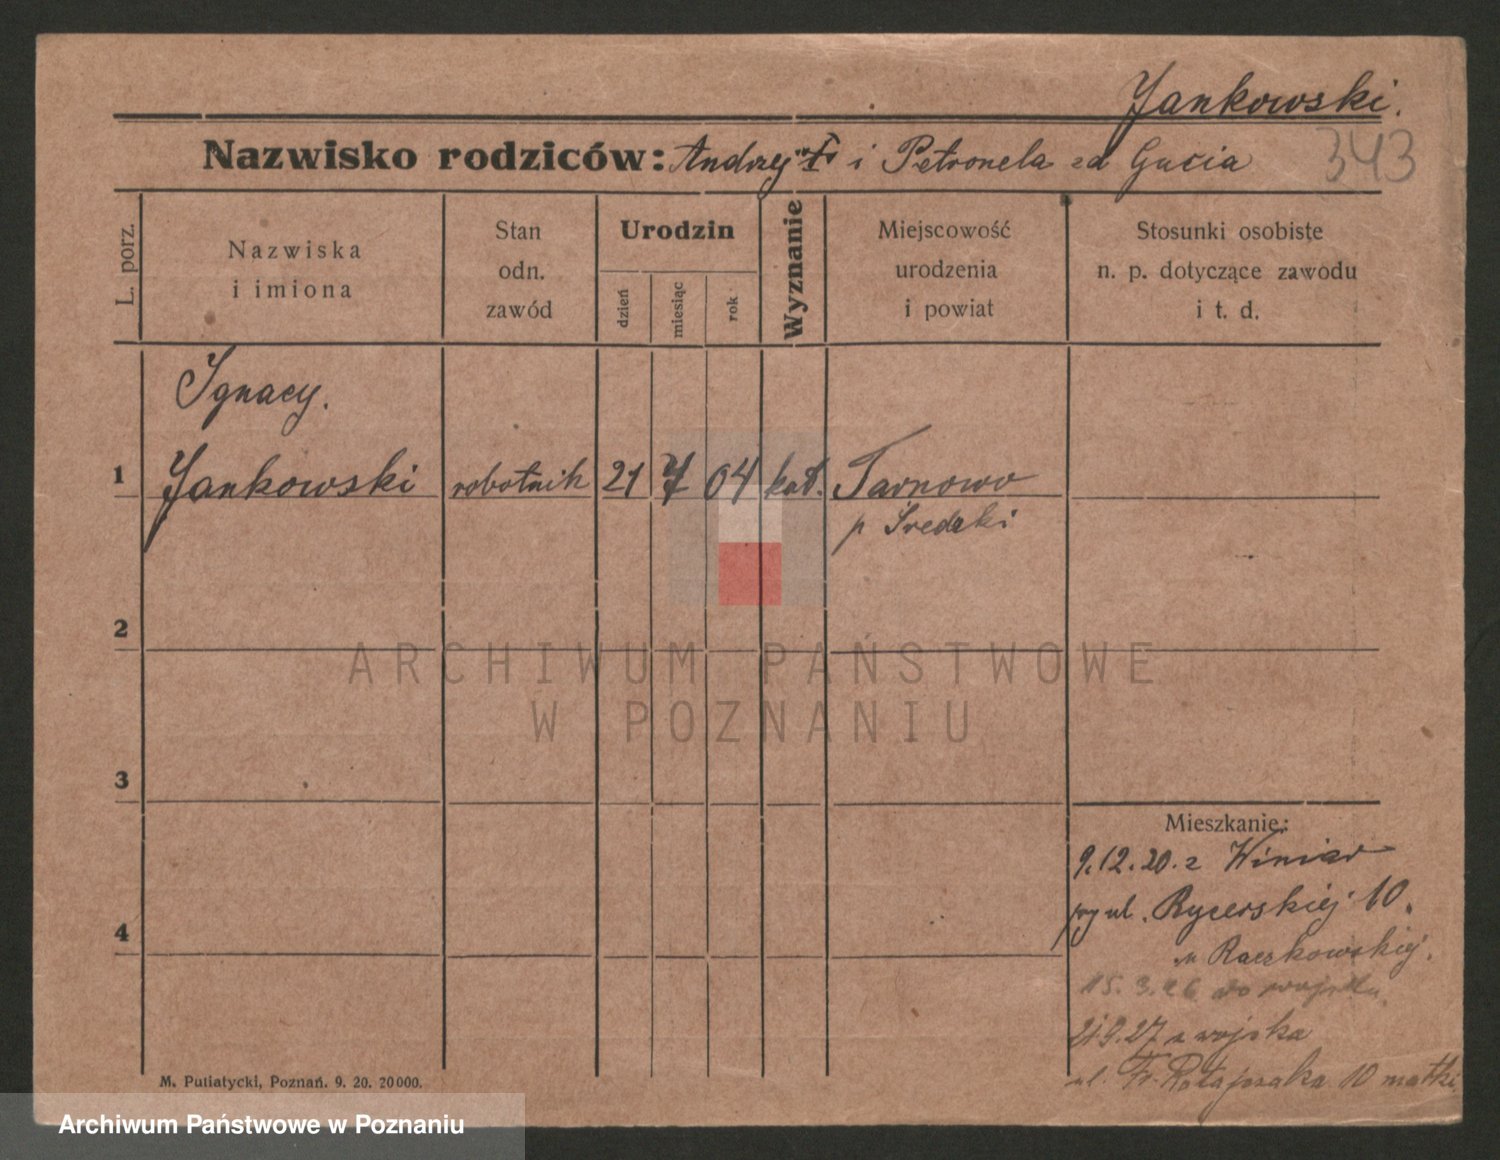 Jankowski.
Nazwisko rodziców: Andrzej i Petronela zd Gucia
343
L. porz.
Nazwiska
i imiona
Stan
odn.
zawód
Urodzin
dzień
miesiąc
rok
Wyznanie
Miejscowość
urodzenia
i powiat
Stosunki osobiste
n. p. dotyczące zawodu
i t. d.
Ignacy.
1 Jankowski robotnik 21 7 04 kat. Tarnowo
p Średzki
2
ARCHIWUM PAŃSTWOWE
W POZNANIU
3
4
Mieszkanie:
9.12.20. z Winiar
przy ul. Rycerskiej 10.
u Raczkowskiej.
15.3.26 do wojska
21.9.27 z wojska
ul. Fr. Ratajczaka 10 matki
M. Putiatycki, Poznań. 9. 20. 20000.
Archiwum Państwowe w Poznaniu